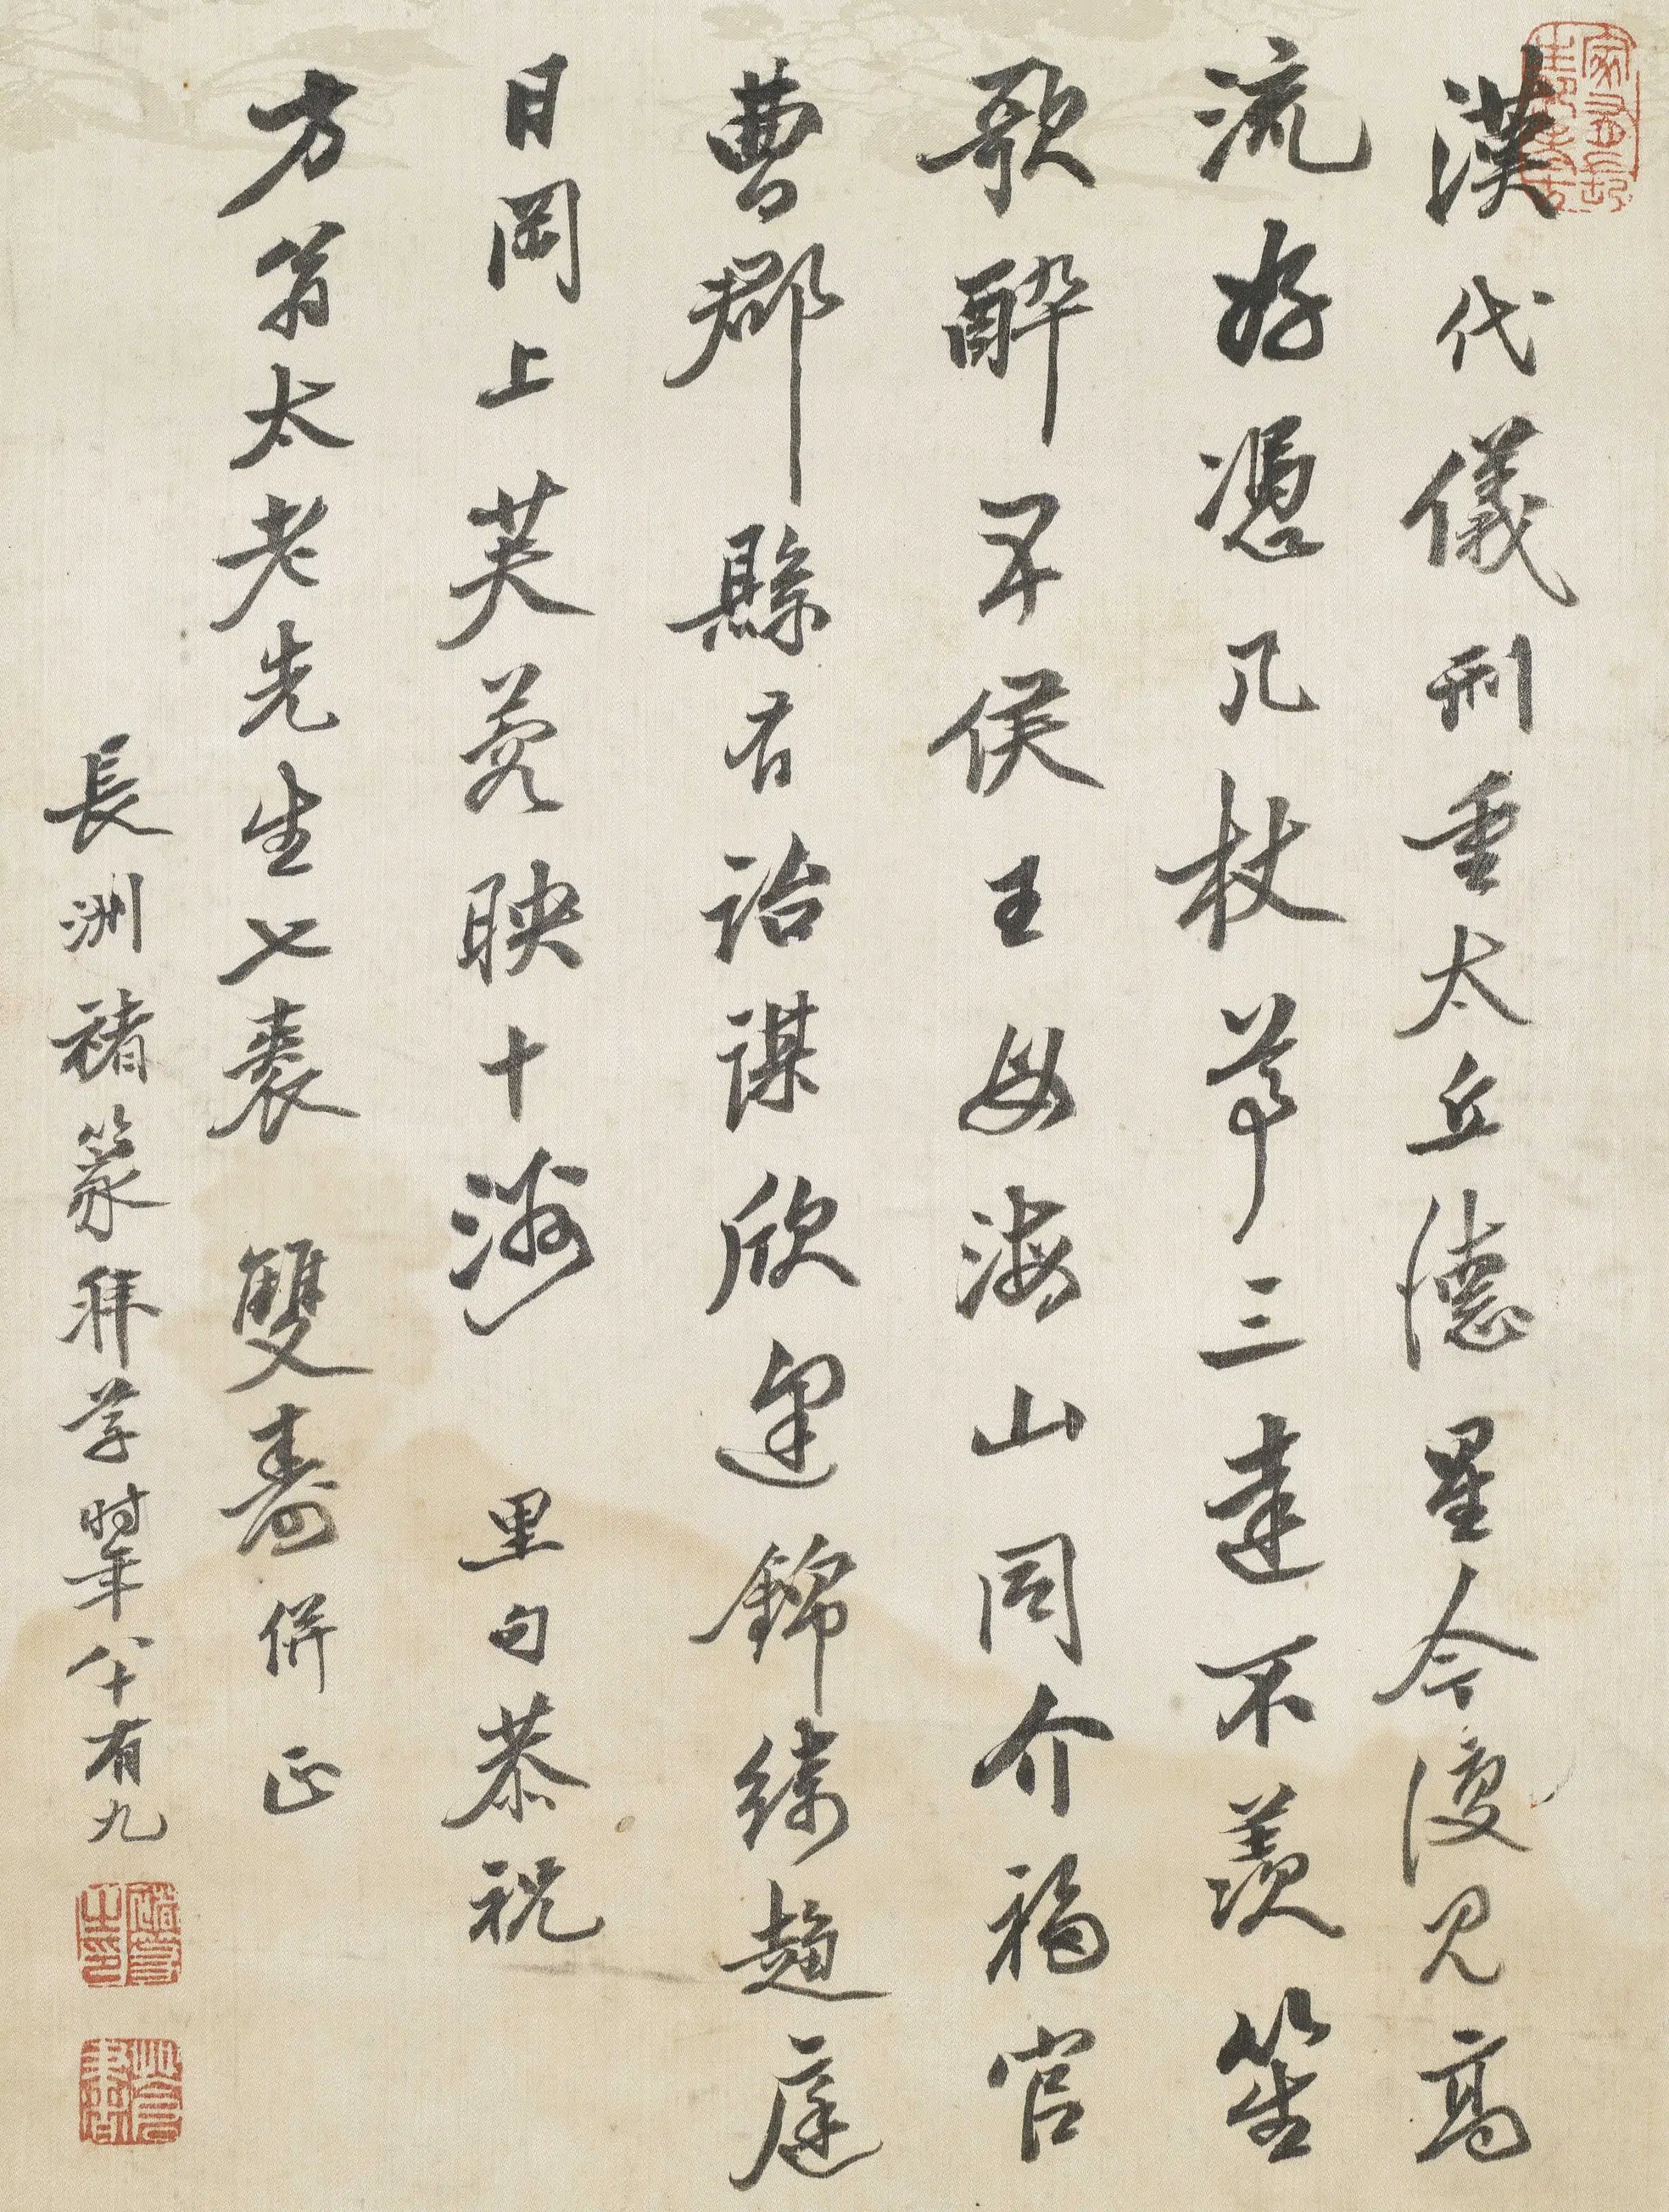 漢代儀刑重太丘德星今復見高
流好憑几杖尊三達不羨笙
歌醉五侯王母海山同介福官
曹郡縣有詒謀欣逢錦綵趨庭
日岡上芙蓉映十洲 里句恭祝
方翁太老先生七袠 雙壽併正
長洲褚篆拜草時年八十有九